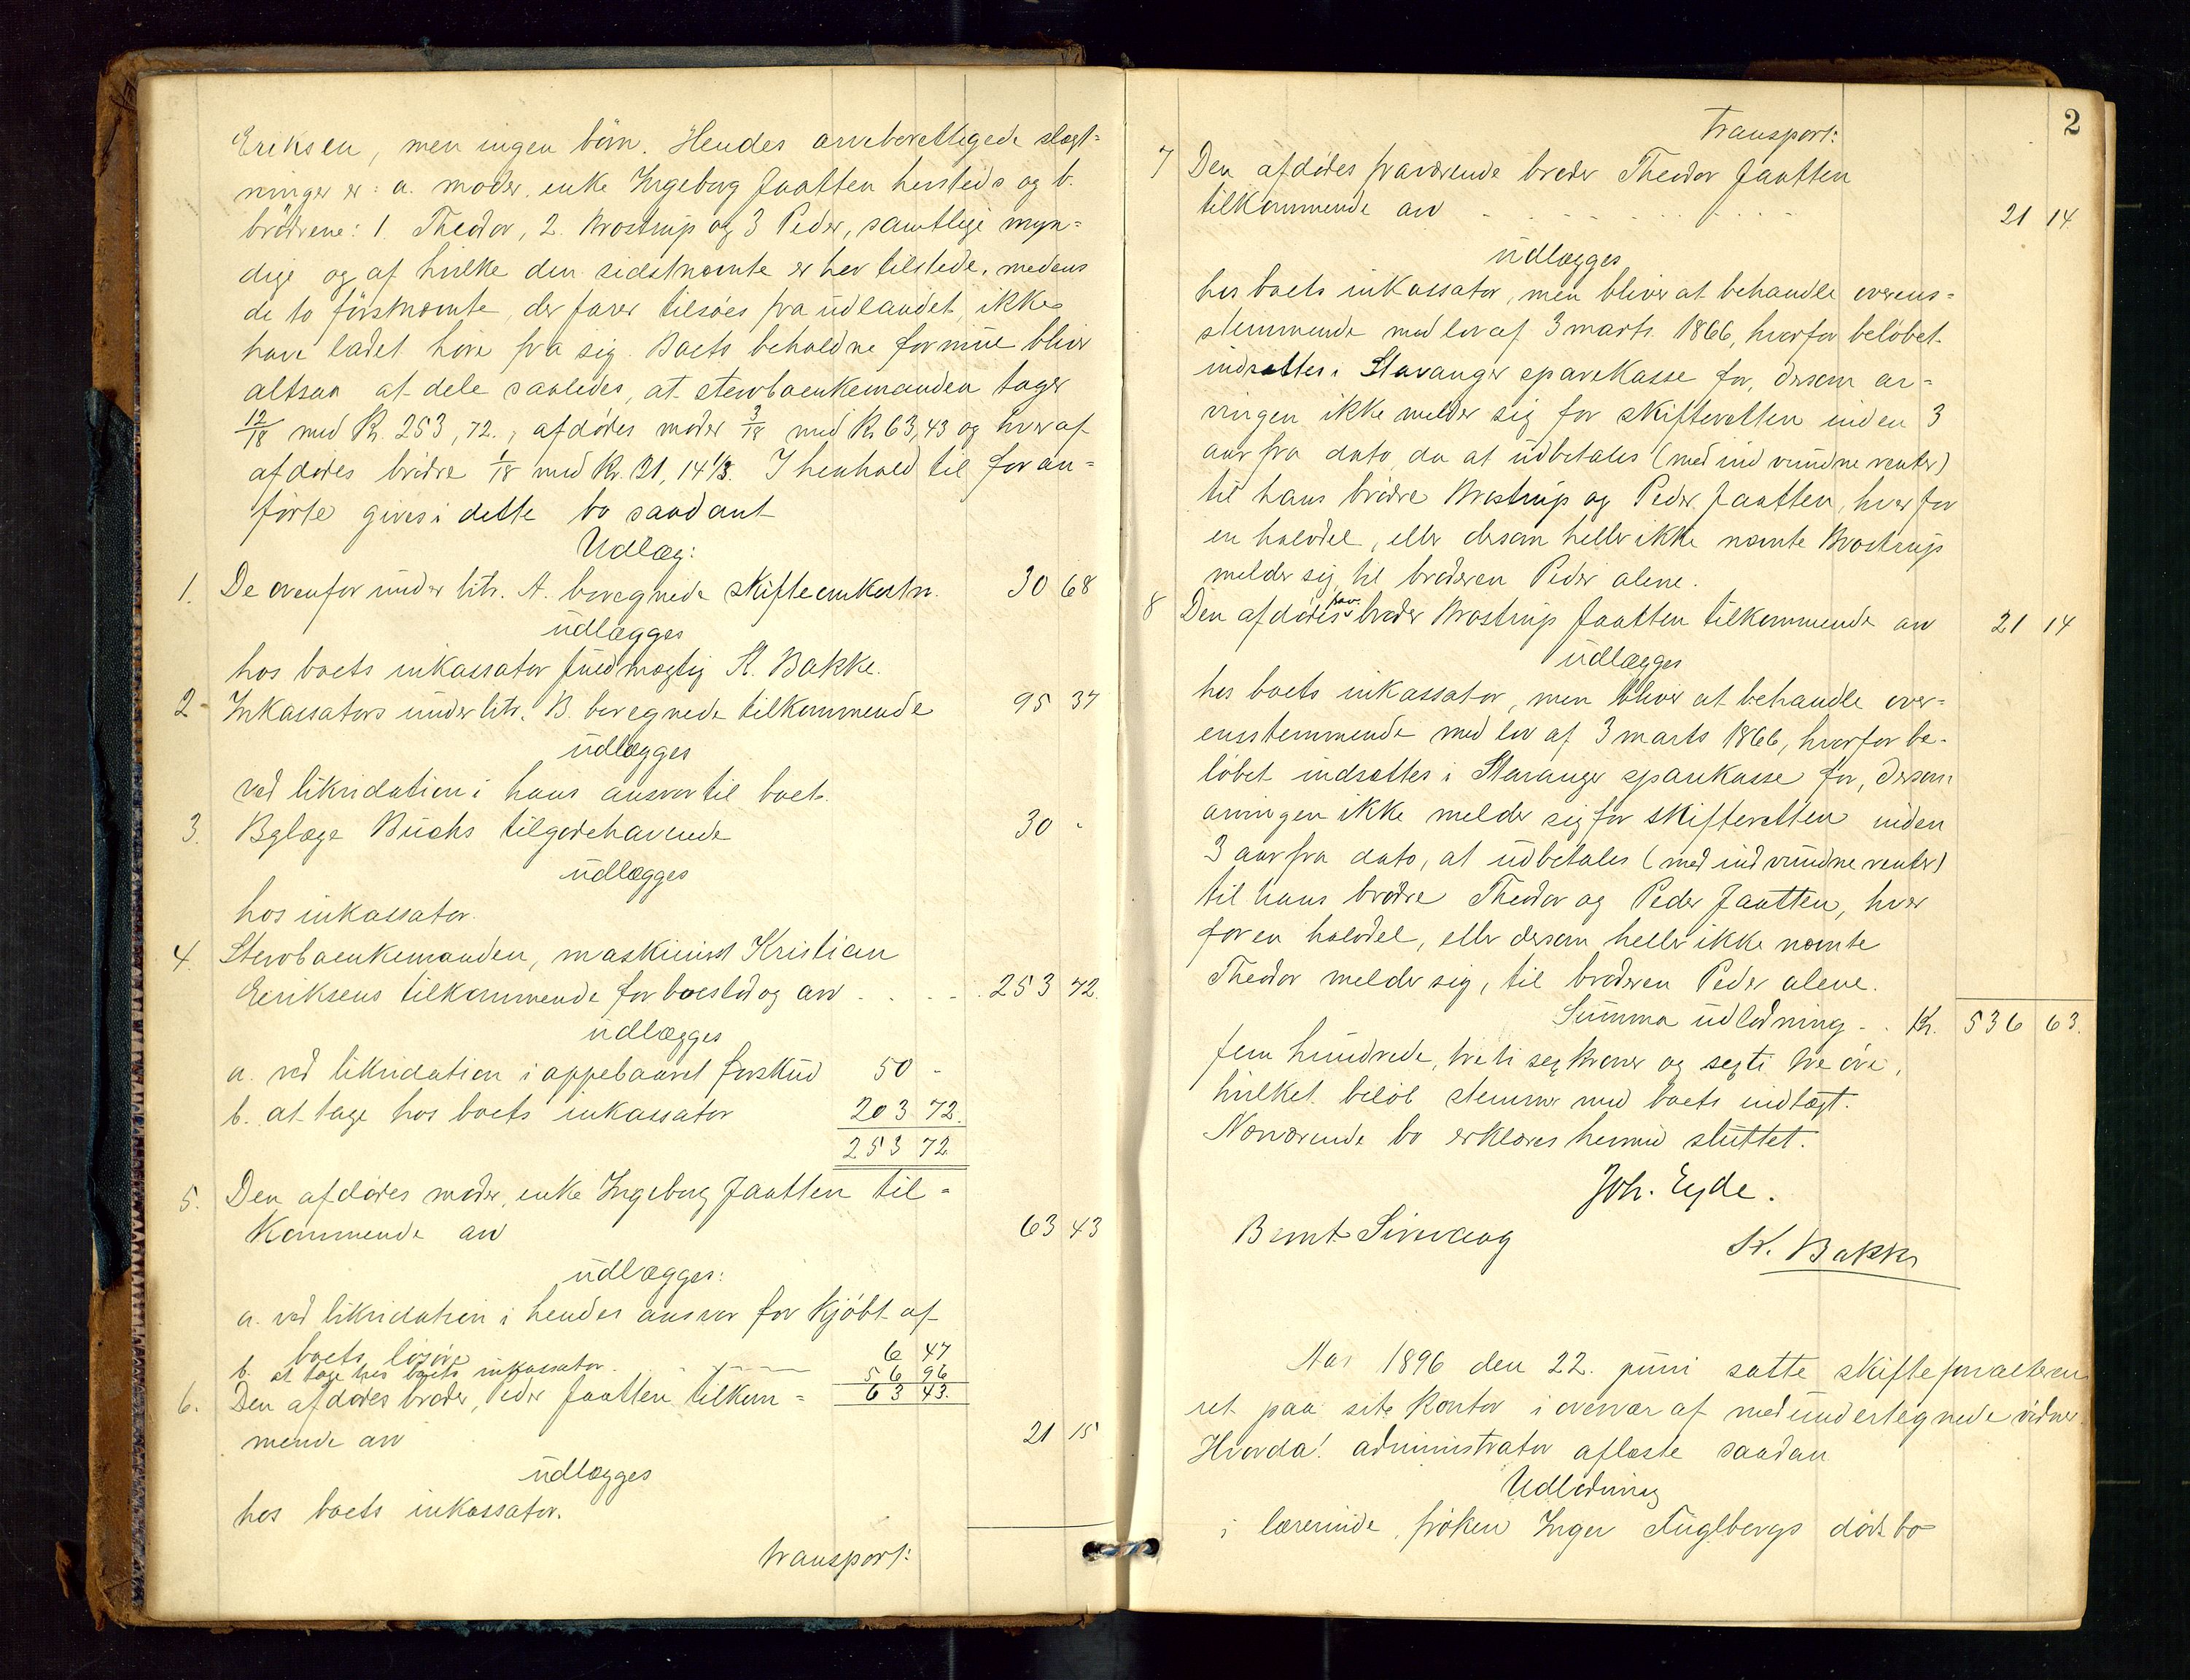 Eriksen, men ingen börn. Hendes arveberettigede slægt=
ninger er: a. moder, enke Ingeborg Jaatten hersteds og b.
brödrene: 1. Theodor, 2. Brostrup og 3 Peder, samtlige myn=
dige og af hvilke den sidstnævnte er her tilstede, medens
de to förstnævnte, der farer tilsöes fra udlandet, ikke
have ladet höre fra sig. Boets beholdne formue bliver
altsaa at dele saaledes, at stervboenkemanden tager
12/18 med Kr. 253,72., afdödes moder 3/18 med Kr 63,43 og hver af
afdödes brödre 1/18 med Kr. 21,14 1/3. I henhold til foran=
förte gives i dette bo saadant
Udlæg:
1. De ovenfor under litr. A. beregnede skifteomkostn. 30 68
udlægges
hos boets inkassator fuldmægtig St. Bakke.
2 Inkassators under litr. B. beregnede tilkommende 95 37
udlægges
ved likvidation i hans ansvar til boet.
3. Bglæge Buchs tilgodehavende 30 -
udlægges
hos inkassator.
4. Stervboenkemanden, maskinist Kristian
Eeriksens tilkommende for boeslod og arv . . . . . 253 72.
udlægges
a. ved likvidation i oppebaaret forskud 50 -
b. at tage hos boets inkassator 203 72.
253 72
5. Den afdödes moder, enke Ingeborg Jaatten til=
kommende arv 63 43
udlægges:
a. ved likvidation i hendes ansvar for kjöbt af
boets lösöre 6 47
b. at tage hos boets inkassator. 56 96
63 43.
6. Den afdödes broder, Peder Jaatten tilkom=
mende arv 21 15
udlægges
hos boets inkassator.
transport:
2
Transport:
7 Den afdödes fraværende broder Theodor Jaatten
tilkommende arv . . . . . . . 21 14
udlægges
hos boets inkassator, men bliver at behandle overens=
stemmende med lov af 3 marts 1866, hvorfor belöbet
indsættes i Stavanger sparekasse for, dersom ar=
vingen ikke melder sig for skifteretten inden 3
aar fra dato, da at udbetales (med indvundne renter)
til hans brödre Brostrup og Peder Jaatten, hver for
en halvdel, eller dersom heller ikke nævnte Brostrup
melder sig, til broderen Peder alene.
8 Den afdödes frav. broder Brostrup Jaatten tilkommende arv 21 14
udlægges
hos boets inkassator, men bliver at behandle over=
ensstemmende med lov af 3 marts 1866, hvorfor be-
löbet indsættes i Stavanger sparekasse for, dersom
arvingen ikke melder sig for skifteretten inden
3 aar fra dato, at udbetales (med indvundne renter)
til hans brödre Theodor og Peder Jaatten, hver
for en halvdel, eller dersom heller ikke nævnte
Theodor melder sig, til broderen Peder alene.
Summa udlodning . . Kr. 536 63.
fem hundrede, treti sex kroner og sexti tre öre,
hvilket belöb stemmer med boets indtægt.
Nærværende bo erklæres hermed sluttet.
Joh. Eyde.
Bernt Sirevaag
St. Bakke
Aar 1896 den 22. juni satte skifteforvalteren
ret paa sit kontor i overvær af medundertegnede vidner.
Hvorda! administrator aflæste saadan
Udlodning
i lærerinde, fröken Inger Fuglbergs dödsbo